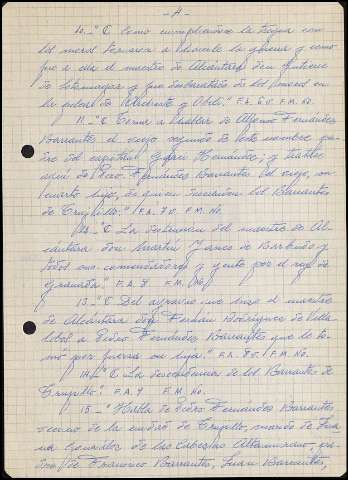 - 4 -
10. - "C Como cumpliéndose la tregua con
los moros tornaron a moverle la guerra y como
fue a ella el maestro de Alcántara don Gutierre
de Sotomayor y fue desbaratado de los moros en
la puebla de y Obili." F.A. 60. F.M. No.
11. - "C Torna a hablar de Alfonso Fernández
Barrantes el viejo segundo de este nombre pa-
dre del capitán García Hernández; y trátase
aquí de Pedro Fernández Barrantes el viejo, su
cuarto hijo, de quien sucedieron los Barrantes
de Trujillo." F.A. 70. F.M. No.
12. - "C La destrucción del maestro de Al-
cántara don Martín Yanes de Barbudo y
todos sus comendadores y gente por el rey de
Granada." F.A. 8. F.M. No.
13. - "C Del agravio que hizo el maestro
de Alcántara don Fernán Rodríguez de Villa-
lobos a Pedro Fernández Barrantes que le to-
mó por fuerza su hija." F.A. 80. F.M. No.
14. - "C La descendencia de los Barrantes de
Trujillo." F.A. 9. F.M. No.
15. - "Habla de Pedro Fernández Barrantes
vecino de la ciudad de Trujillo, marido de Jua-
na González de las Cabezas Altamirano, pa-
dre de Francisco Barrantes, Juan Barrantes,